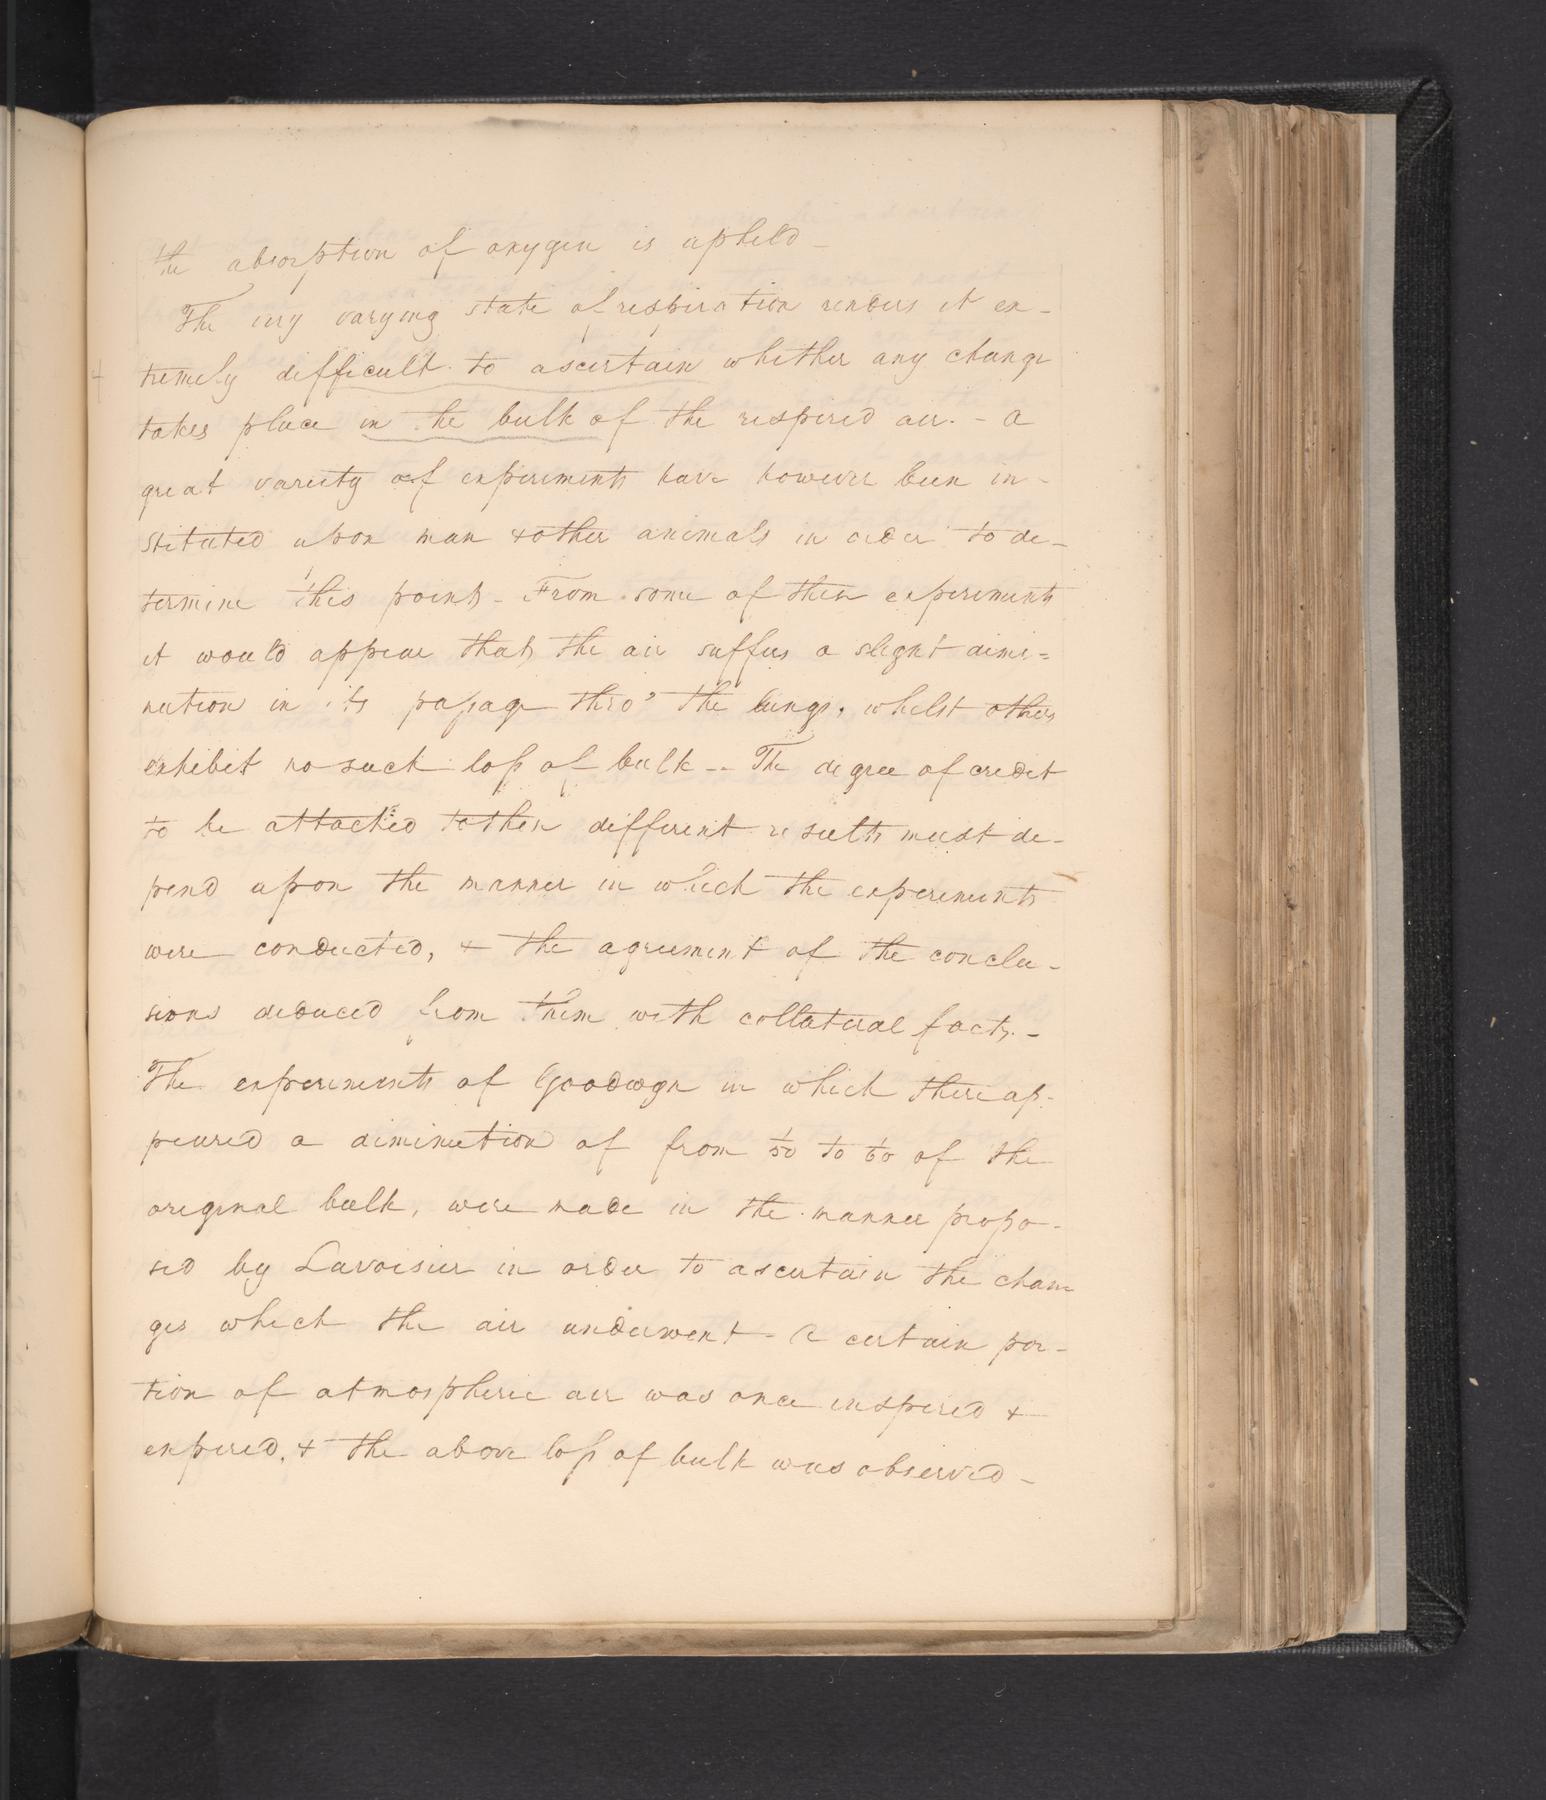 the absorption of oxygen is upheld –
The very varying state of respiration renders it ex-
tremely difficult to ascertain whether any change
takes place in the bulk of the respired air. – A
great variety of experiments have however been in-
stituted upon man & other animals in order to de-
termine this point – From some of these experiments
it would appear that the air suffers a slight dimi=
nution in its passage thro' the lungs, whilst others
exhibit no such loss of bulk -- The degree of credit
to be attached to these different results must de-
pend upon the manner in which the experiments
were conducted, & the agreement of the conclu-
sions deduced from them with collateral facts. –
The experiments of Goodwyn in which there ap-
peared a diminution of from 1/50 to 1/60 of the
original bulk, were made in the manner propo-
sed by Lavoisier in order to ascertain the chan
ges which the air underwent – A certain por-
tion of atmospheric air was once inspired &
expired, & the above loss of bulk was observed –